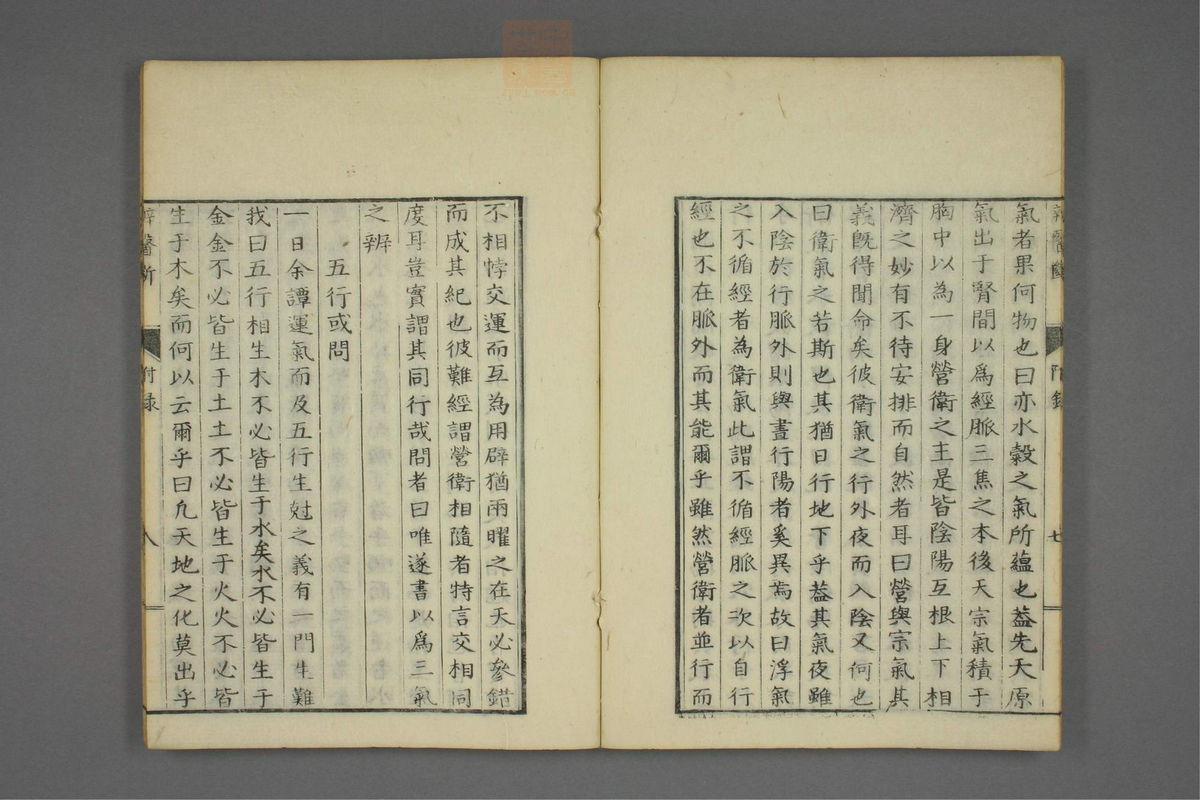 氣者果何物也曰亦水穀之氣所蘊也葢先天原
氣出于腎間以爲經脈三焦之本後天宗氣積于
胸中以為一身營衛之主是皆陰陽互根上下相
濟之妙有不待安排而自然者耳曰營與宗氣其
義既得聞命矣彼衛氣之行外夜而入陰又何也
曰衛氣之若斯也其猶日行地下乎葢其氣夜雖
入陰於行脈外則與晝行陽者奚異焉故曰浮氣
之不循經者為衛氣此謂不循經脈之次以自行
經也不在脈外而其能爾乎雖然營衛者並行而
不相悖交運而互為用辟猶兩曜之在天必參錯
而成其紀也彼難經謂營衛相隨者特言交相同
度耳豈實謂其同行哉問者曰唯遂書以爲三氣
之辨
五行或問
一日余譚運氣而及五行生尅之義有一門生難
我曰五行相生木不必皆生于水矣水不必皆生于
金金不必皆生于土土不必皆生于火火不必皆
生于木矣而何以云爾乎曰凡天地之化莫出乎
辨醫斷
附録
八